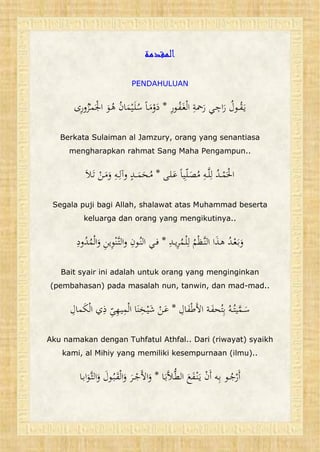 المقدمة
PENDAHULUAN
يَقُـولُ رَاجِي رَحْمَةِ الْغَفُورِ * دَوْمَاً سُلَيْمَانُ هُـوَ الْجَمْزُورِى
Berkata Sulaiman al Jamzury, orang yang senantiasa
mengharapkan rahmat Sang Maha Pengampun..
الْحَمْـدُ لِلَّـهِ مُصَلِّيـاً عَـلَى * مُحَـمَّـدٍ وَآلـِهِ وَمَـنْ تَـلاَ
Segala puji bagi Allah, shalawat atas Muhammad beserta
keluarga dan orang yang mengikutinya..
وَبَعْـدُ هذَا النَّظْمُ لِلْمُرِيـدِ * فـِي النُّـونِ والتَّنْوِينِ وَالْمُدُودِ
Bait syair ini adalah untuk orang yang menginginkan
(pembahasan) pada masalah nun, tanwin, dan mad-mad..
سَـمَّيْتُـهُ بِتُحفَـةِ الأَطْفَالِ * عَنْ شَيْخِنَا الْمِيهِيِّ ذِي الْكَمالِ
Aku namakan dengan Tuhfatul Athfal.. Dari (riwayat) syaikh
kami, al Mihiy yang memiliki kesempurnaan (ilmu)..
أَرْجُـو بِه أَنْ يَنْفَـعَ الطُّـلاَّبَـا * وَالأَجْـرَ وَالْقَبُـولَ وَالثَّوَابـا